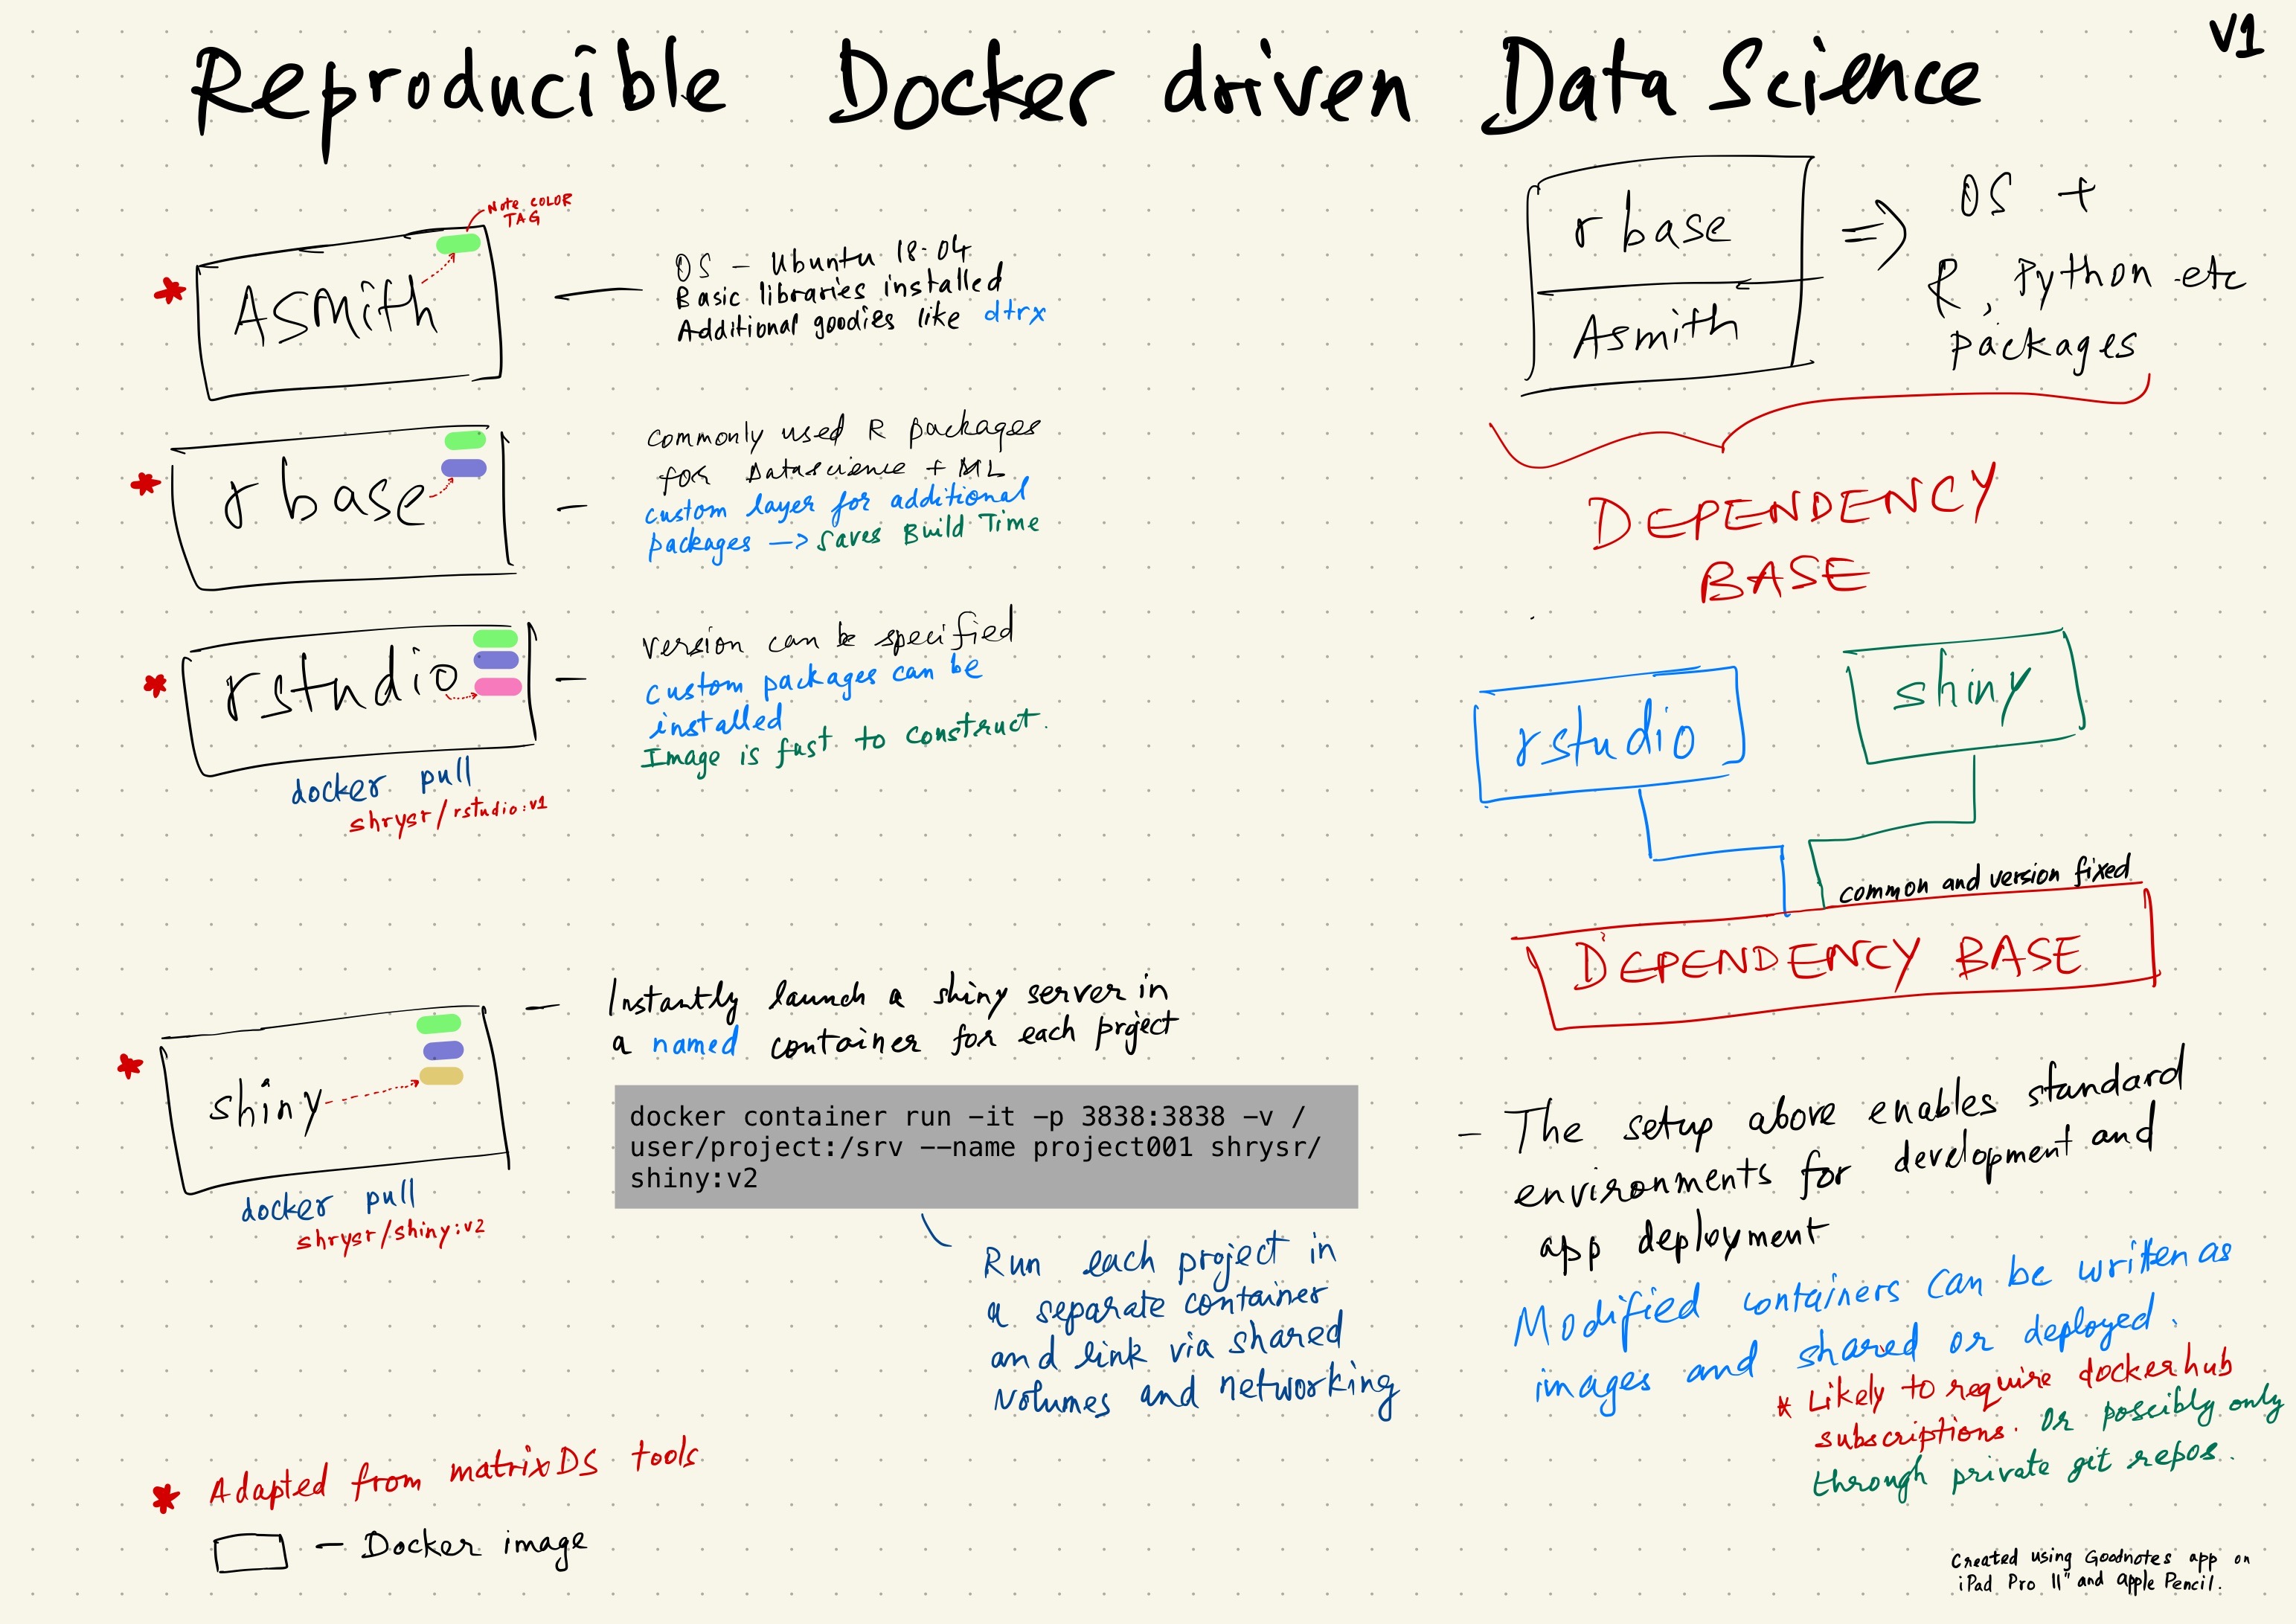 V1
Reproducible Docker driven Data Science
Note COLOR
TAG
ASmith
OS - Ubuntu 18:04
Basic libraries installed
Additional goodies like dtrx
r base
commonly used R packages
for Datascience + ML
custom layer for additional
packages —> Saves Build Time
rstudio
version can be specified
custom packages can be
installed
Image is fast to construct.
docker pull
shrysr/rstudio:v1
shiny
Instantly launch a shiny server in
a named container for each project
docker container run -it -p 3838:3838 -v /
user/project:/srv --name project001 shrysr/
shiny:v2
docker pull
shrysr/shiny:v2
Run each project in
a separate container
and link via shared
volumes and networking
* Adapted from matrixDS tools
- Docker image
r base
Asmith
=> OS +
R, Python etc
packages
DEPENDENCY
BASE
rstudio
shiny
common and version fixed
DEPENDENCY BASE
- The setup above enables standard
environments for development and
app deployment
Modified containers can be written as
images and shared or deployed.
* Likely to require dockerhub
subscriptions. Or poscibly only
through private git repos.
Created using Goodnotes app on
iPad Pro 11" and apple Pencil.